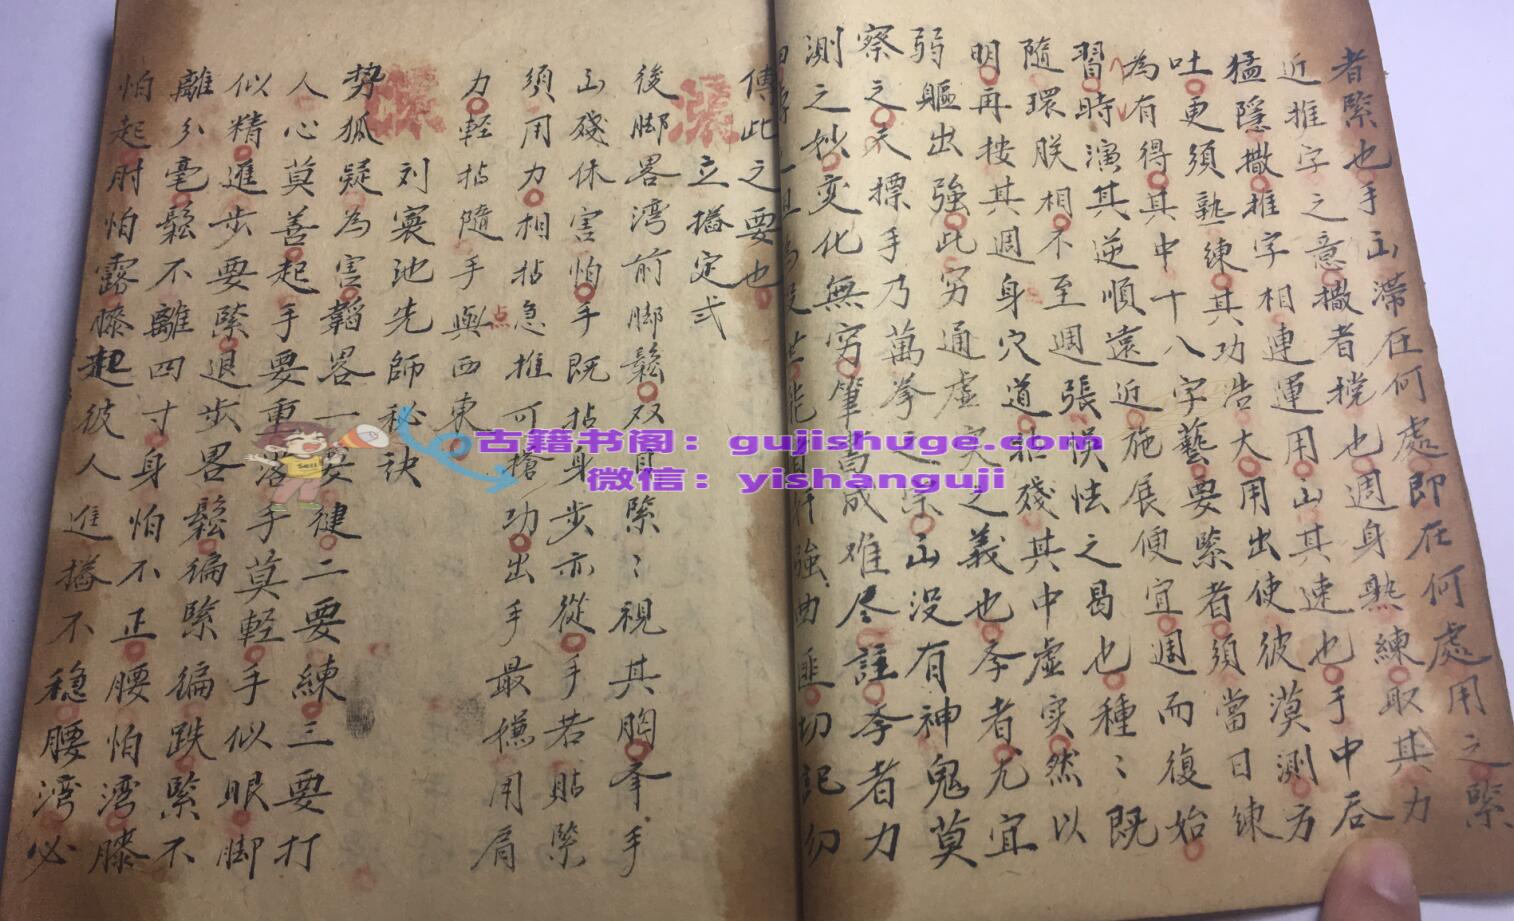 滯在何處即在何處用之緊
者緊也手山
週身熟練取其力
近推字之意撒者撓也
猛隱撒推字相連運用山其速也手中吞
吐更須熟練其功浩大用出使彼漠測方
為有得其中十八字藝要緊者須當日練
習時演其逆順遠近施展便宜週而復始
隨環朕相不至週張悮怯之曷也種〻既
明再按其週身穴道和殘其中虛实然以
弱軀出強此穷通虛实之義也李者尤宜
察之天標手乃萬拳之宗山没有神鬼莫
測之妙变化無穷筆尚成难尽註李者力
強由匪切記勿
傳此之要也
立樁定式
後脚畧湾前脚鬆双肩緊〻視其胸拿手
山殘休害怕手既拈身步亦從手若貼緊
須用力相拈急推可搶功出手最穩用肩
点
力輕拈隨手與西東
刘裏池先師秘訣
势狐疑為害韜畧一要健二要練三要打
人心莫善起手要重落手莫輕手似眼脚
似精進步要緊退步畧鬆偏緊偏跌緊不
離分毫鬆不離四寸身怕不正腰怕湾膝
怕起肘怕露膝起彼人進樁不穩腰湾必
古籍书阁：gujishuge.com
微信：yishanguji